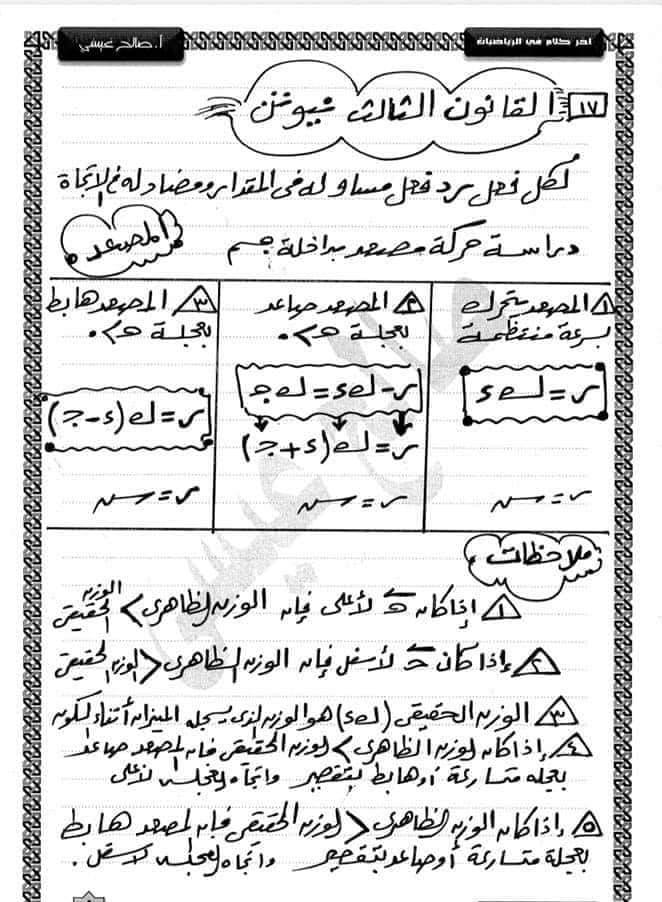 أ. صالح عيسي
آخر كلام في الرياضيات
١٧ القانون الثالث نيوتن
لكل فعل رد فعل مساو له فى المقدار ومضاد له فى الاتجاة
دراسة حركة مصعد بداخلة جسم
المصعد
١ المصعد يتحرك
بسرعة منتظمة
ر = ك ء
ر = ش
٢ المصعد صاعد
بعجلة ج > ٠
ر - ك ء = ك ج
ر = ك (ء + ج)
ر = ش
٣ المصعد هابط
بعجلة ج > ٠
ر = ك (ء - ج)
ر = ش
ملاحظات
١ إذا كان ج لأعلى فإن الوزن الظاهرى > الوزن الحقيقى
٢ إذا كان ج لأسفل فإن الوزن الظاهرى < الوزن الحقيقى
٣ الوزن الحقيقى (ك ء) هو الوزن الذى يسجله الميزان أثناء السكون
٤ إذا كان الوزن الظاهرى > الوزن الحقيقى فإن المصعد صاعد
بعجله متسارعة أو هابط بتقصير واتجاه العجلة لأعلى
٥ إذا كان الوزن الظاهرى < الوزن الحقيقى فإن المصعد هابط
بعجلة متسارعة أو صاعد بتقصير واتجاه العجلة لاسفل .
صالح عيسي